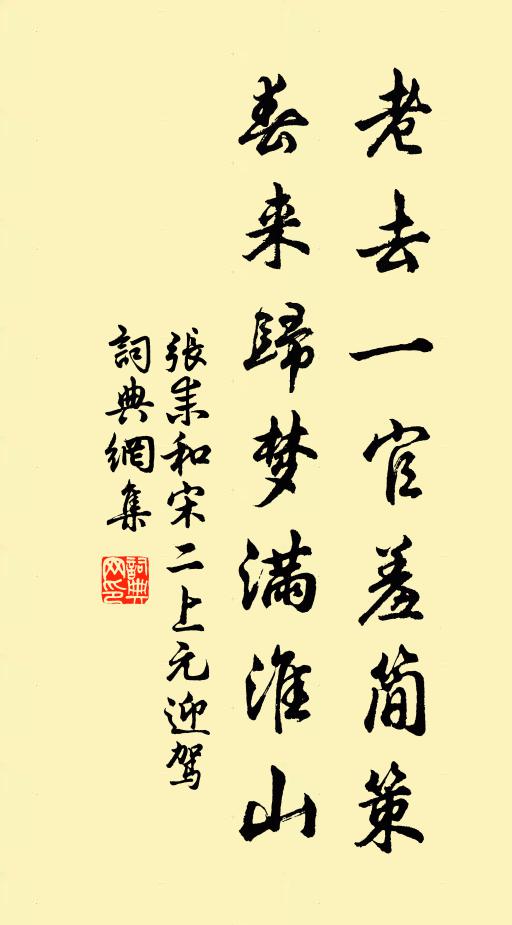 老去一官羞簡策
春来歸梦满淮山
張耒和宋二上元迎駕
詞典網集
詞典网印